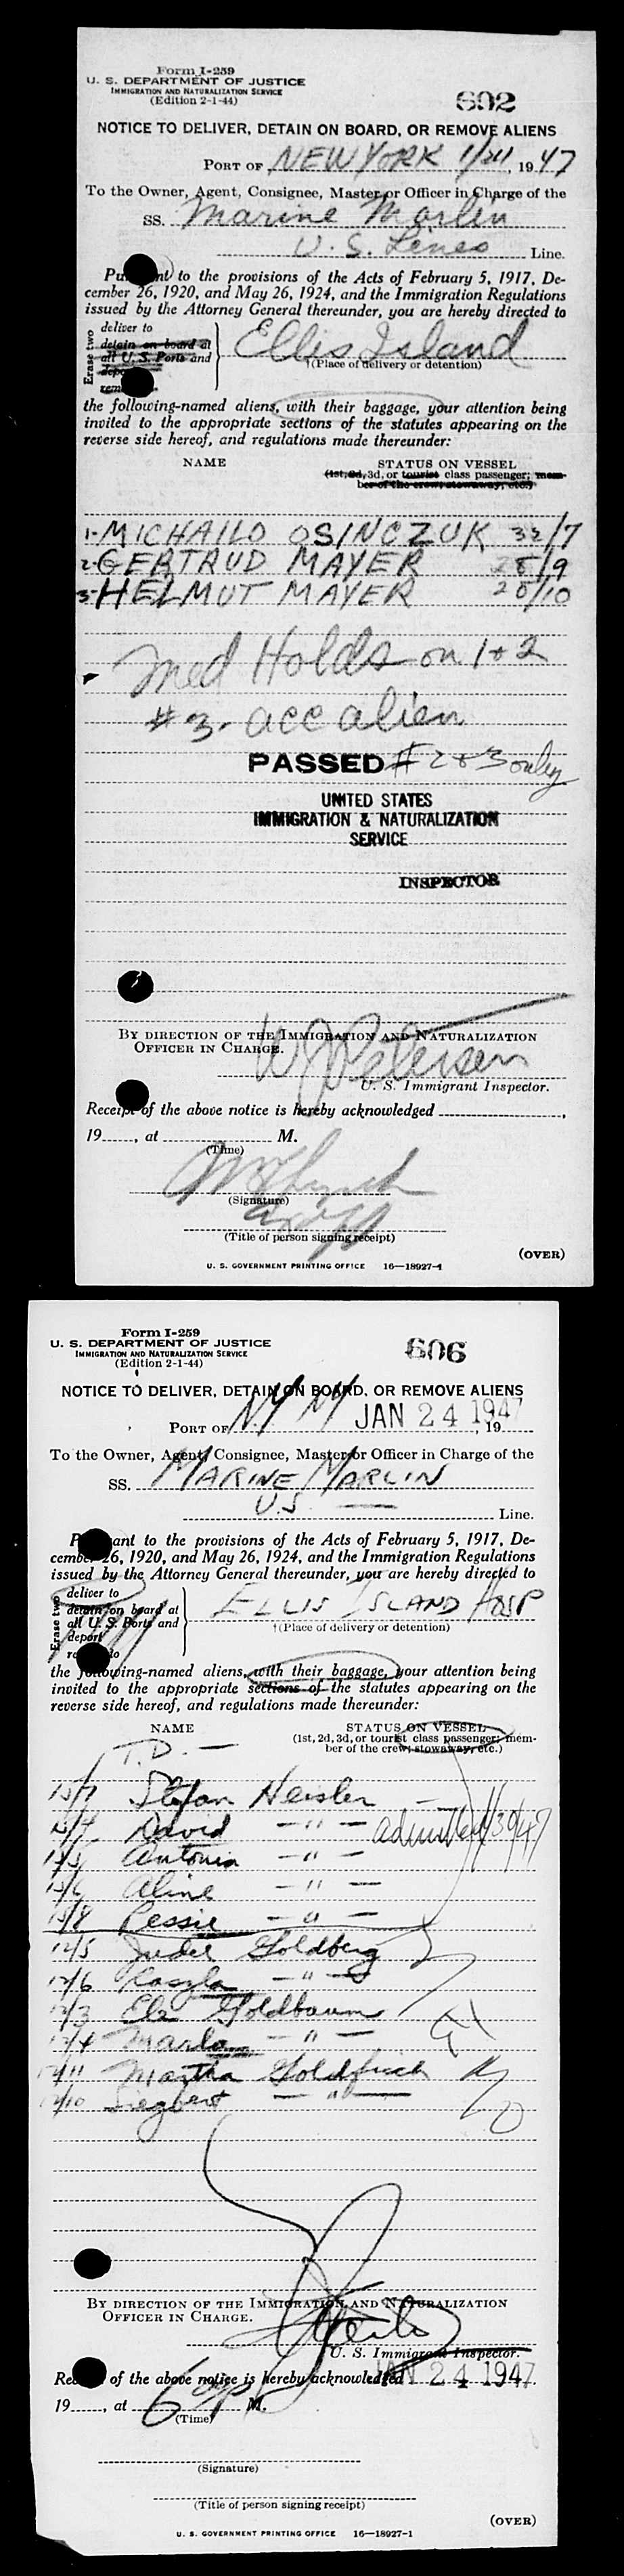 Form I-259
U. S. DEPARTMENT OF JUSTICE
IMMIGRATION AND NATURALIZATION SERVICE
(Edition 2-1-44)
602
NOTICE TO DELIVER, DETAIN ON BOARD, OR REMOVE ALIENS
PORT OF NEW YORK 1/24, 1947
To the Owner, Agent, Consignee, Master, or Officer in Charge of the
SS. Marine Marlin
U. S. Lines Line.
Pu nt to the provisions of the Acts of February 5, 1917, De-
cember 26, 1920, and May 26, 1924, and the Immigration Regulations
issued by the Attorney General thereunder, you are hereby directed to
Erase two
deliver to
detain on board at
all U.S. Ports and
depo
rem
Ellis Island
†(Place of delivery or detention)
the following-named aliens, with their baggage, your attention being
invited to the appropriate sections of the statutes appearing on the
reverse side hereof, and regulations made thereunder:
NAME STATUS ON VESSEL
(1st, 2d, 3d, or tourist class passenger; mem-
ber of the crew; stowaway; etc.)
1-MICHAILO OSINCZUK 33/7
2-GERTRUD MAYER 28/9
3-HELMUT MAYER 28/10
Med Holds on 1+2
#3. acc alien
PASSED # 2 & 3 only
UNITED STATES
IMMIGRATION & NATURALIZATION
SERVICE
INSPECTOR
BY DIRECTION OF THE IMMIGRATION AND NATURALIZATION
OFFICER IN CHARGE.
W J Petersen
U. S. Immigrant Inspector.
Receipt of the above notice is hereby acknowledged ,
19 , at M.
(Time)
(Signature)
(Title of person signing receipt)
(OVER)
U. S. GOVERNMENT PRINTING OFFICE 16—18927-1
Form I-259
U. S. DEPARTMENT OF JUSTICE
IMMIGRATION AND NATURALIZATION SERVICE
(Edition 2-1-44)
606
NOTICE TO DELIVER, DETAIN ON BOARD, OR REMOVE ALIENS
PORT OF NY NY JAN 24 1947, 19
To the Owner, Agent, Consignee, Master, or Officer in Charge of the
SS. MARINE MARLIN
U.S. — Line.
P ant to the provisions of the Acts of February 5, 1917, De-
cemb 26, 1920, and May 26, 1924, and the Immigration Regulations
issued by the Attorney General thereunder, you are hereby directed to
Erase two
deliver to
detain on board at
all U.S. Ports and
deport
re to
ELLIS ISLAND HOSP
†(Place of delivery or detention)
the following-named aliens, with their baggage, your attention being
invited to the appropriate sections of the statutes appearing on the
reverse side hereof, and regulations made thereunder:
NAME STATUS ON VESSEL
(1st, 2d, 3d, or tourist class passenger; mem-
ber of the crew; stowaway, etc.)
T.D. —
Stefan Heisler —
David — " — admitted 1/30/47
Antonia — " —
Aline — " —
Pessie — " —
12/5 Judel Goldberg
12/6 — " —
12/3 Goldbaum
12/4 Marla — " —
12/11 Martha Goldfisch
12/10 Siegbert — " —
BY DIRECTION OF THE IMMIGRATION AND NATURALIZATION
OFFICER IN CHARGE.
U. S. Immigrant Inspector.
Re of the above notice is hereby acknowledged JAN 24 1947
19 , at 6 M.
(Time)
(Signature)
(Title of person signing receipt)
(OVER)
U. S. GOVERNMENT PRINTING OFFICE 16—18927-1